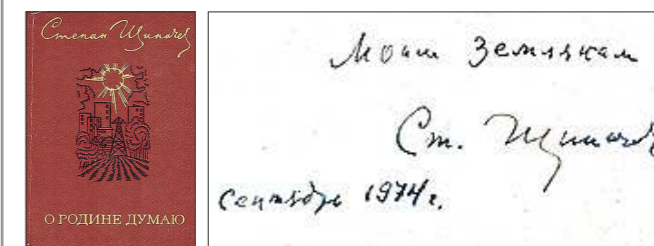 Степан Щипачев
О РОДИНЕ ДУМАЮ
Моим Землякам
Ст. Щипачев
Сентябрь 1974 г.